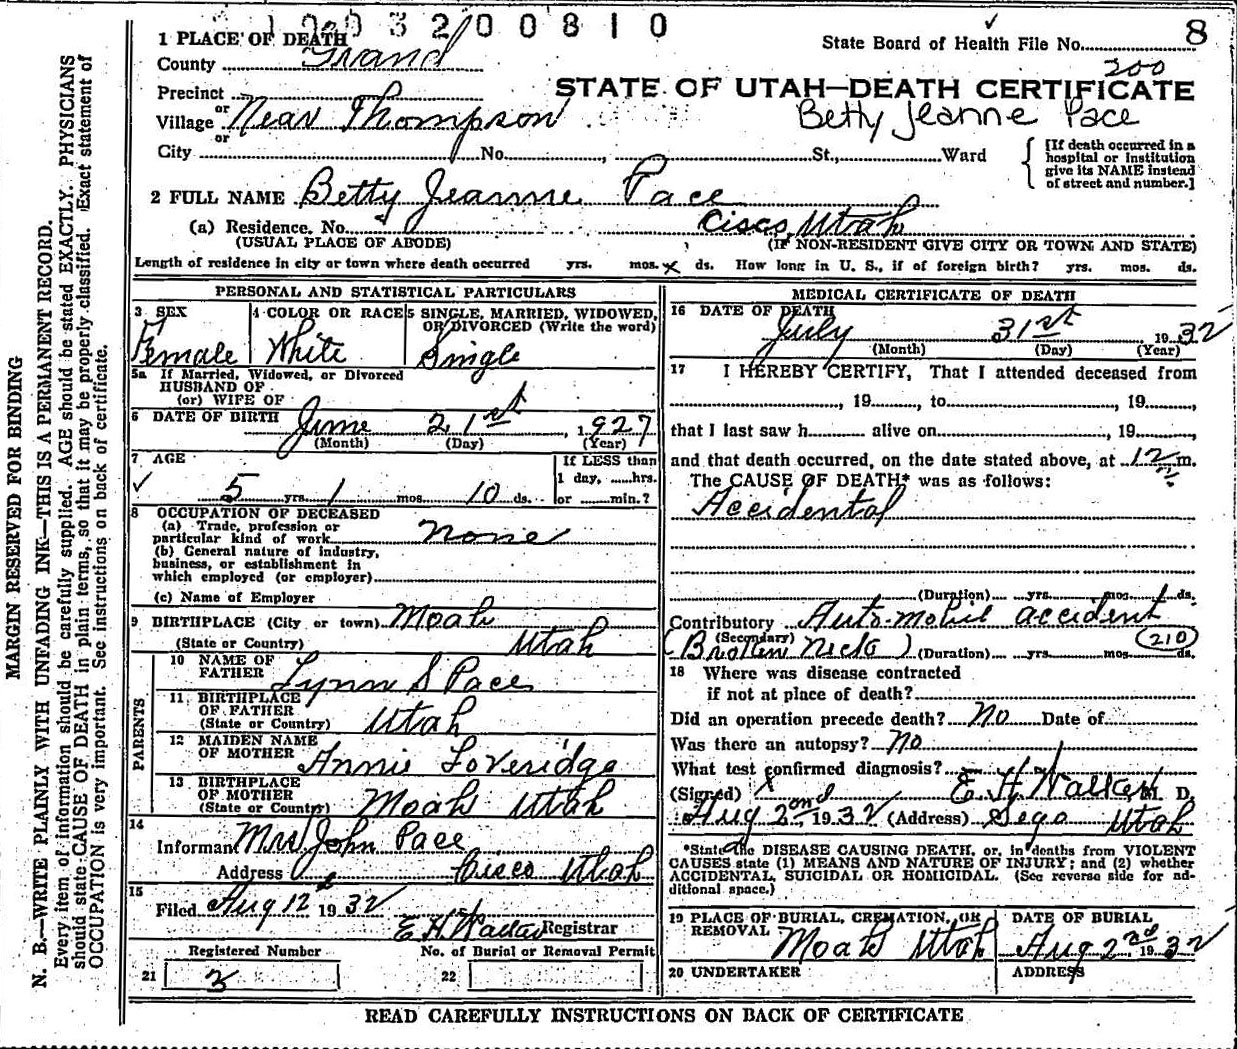 1 9 3 2 0 0 8 1 0
8
1 PLACE OF DEATH
State Board of Health File No.
County Grand
200
STATE OF UTAH—DEATH CERTIFICATE
Precinct
or
Village Near Thompson
Betty Jeanne Pace
or
City No. St., Ward
[If death occurred in a hospital or institution give its NAME instead of street and number.]
2 FULL NAME Betty Jeanne Pace
(a) Residence. No. Cisco, Utah
(USUAL PLACE OF ABODE) (IF NON-RESIDENT GIVE CITY OR TOWN AND STATE)
Length of residence in city or town where death occurred yrs. mos. x ds. How long in U. S., if of foreign birth? yrs. mos. ds.
PERSONAL AND STATISTICAL PARTICULARS
3 SEX
Female
4 COLOR OR RACE
White
5 SINGLE, MARRIED, WIDOWED,
OR DIVORCED (Write the word)
Single
5a If Married, Widowed, or Divorced
HUSBAND OF
(or) WIFE OF
6 DATE OF BIRTH June 21st, 1927
(Month) (Day) (Year)
7 AGE
If LESS than
1 day, ......hrs.
✓ 5 yrs. 1 mos. 10 ds. or ........min.?
8 OCCUPATION OF DECEASED
(a) Trade, profession or
particular kind of work None
(b) General nature of industry,
business, or establishment in
which employed (or employer)
(c) Name of Employer
9 BIRTHPLACE (City or town) Moab
(State or Country) Utah
PARENTS
10 NAME OF
FATHER Lynn S Pace
11 BIRTHPLACE
OF FATHER
(State or Country) Utah
12 MAIDEN NAME
OF MOTHER Annie Loveridge
13 BIRTHPLACE
OF MOTHER
(State or Country) Moab Utah
14
Informant Mrs John Pace
Address Cisco Utah
15
Filed Aug 12 1932
E H Walker Registrar
Registered Number No. of Burial or Removal Permit
21 3 22
MEDICAL CERTIFICATE OF DEATH
16 DATE OF DEATH
July 31st 1932
(Month) (Day) (Year)
17 I HEREBY CERTIFY, That I attended deceased from
, 19 , to , 19 ,
that I last saw h alive on , 19
and that death occurred, on the date stated above, at 12 m.
The CAUSE OF DEATH* was as follows:
Accidental
(Duration) yrs. mos. ds.
Contributory Auto-mobil accident
(Secondary)
(Broken Neck) (Duration) yrs. mos. ds.
210
18 Where was disease contracted
if not at place of death?
Did an operation precede death? No Date of
Was there an autopsy? No
What test confirmed diagnosis?
(Signed) x E H Walker, M. D.
Aug 2nd, 1932 (Address) Sego Utah
*State the DISEASE CAUSING DEATH, or, in deaths from VIOLENT
CAUSES state (1) MEANS AND NATURE OF INJURY; and (2) whether
ACCIDENTAL, SUICIDAL OR HOMICIDAL. (See reverse side for ad-
ditional space.)
19 PLACE OF BURIAL, CREMATION, OR
REMOVAL Moab Utah
DATE OF BURIAL
Aug 2nd 1932
20 UNDERTAKER ADDRESS
READ CAREFULLY INSTRUCTIONS ON BACK OF CERTIFICATE
MARGIN RESERVED FOR BINDING
N. B.—WRITE PLAINLY WITH UNFADING INK—THIS IS A PERMANENT RECORD.
Every item of information should be carefully supplied. AGE should be stated EXACTLY. PHYSICIANS
should state CAUSE OF DEATH in plain terms, so that it may be properly classified. Exact statement of
OCCUPATION is very important. See instructions on back of certificate.